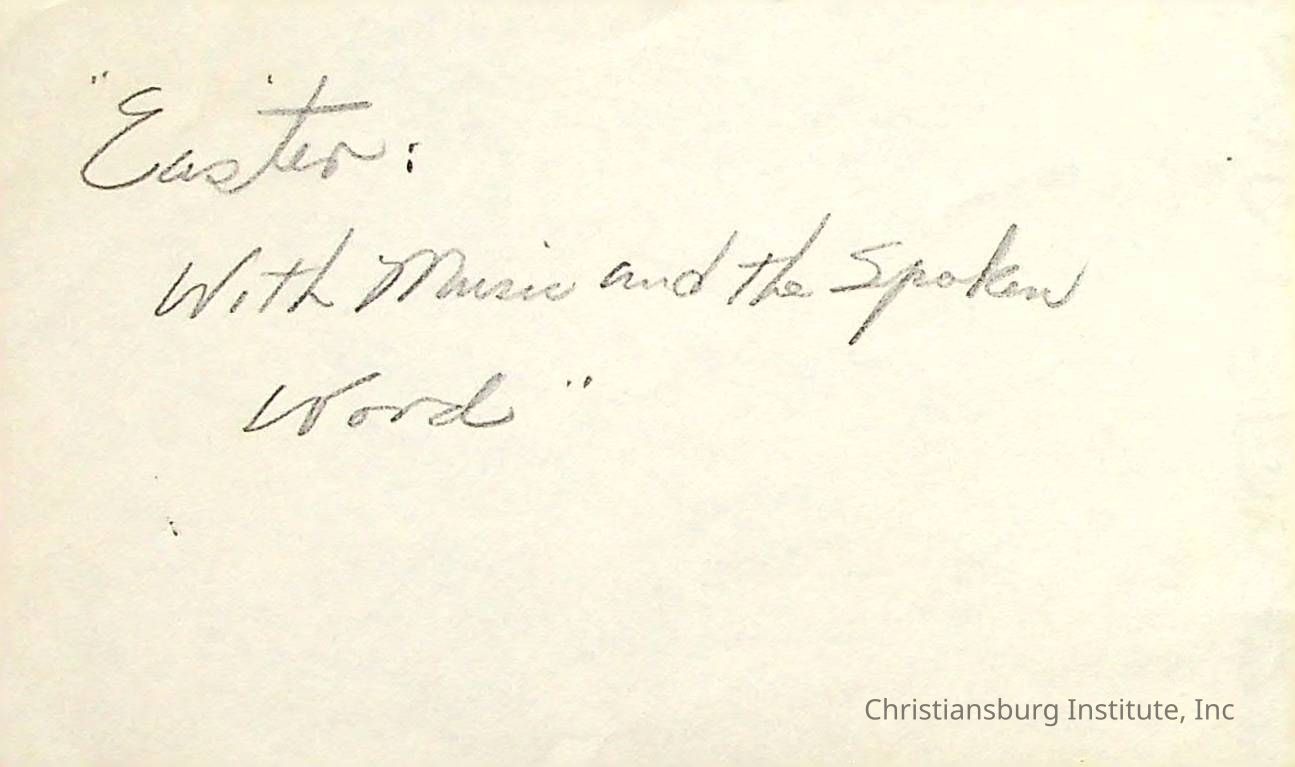 "Easter:
With Music and the Spoken
Word"
Christiansburg Institute, Inc